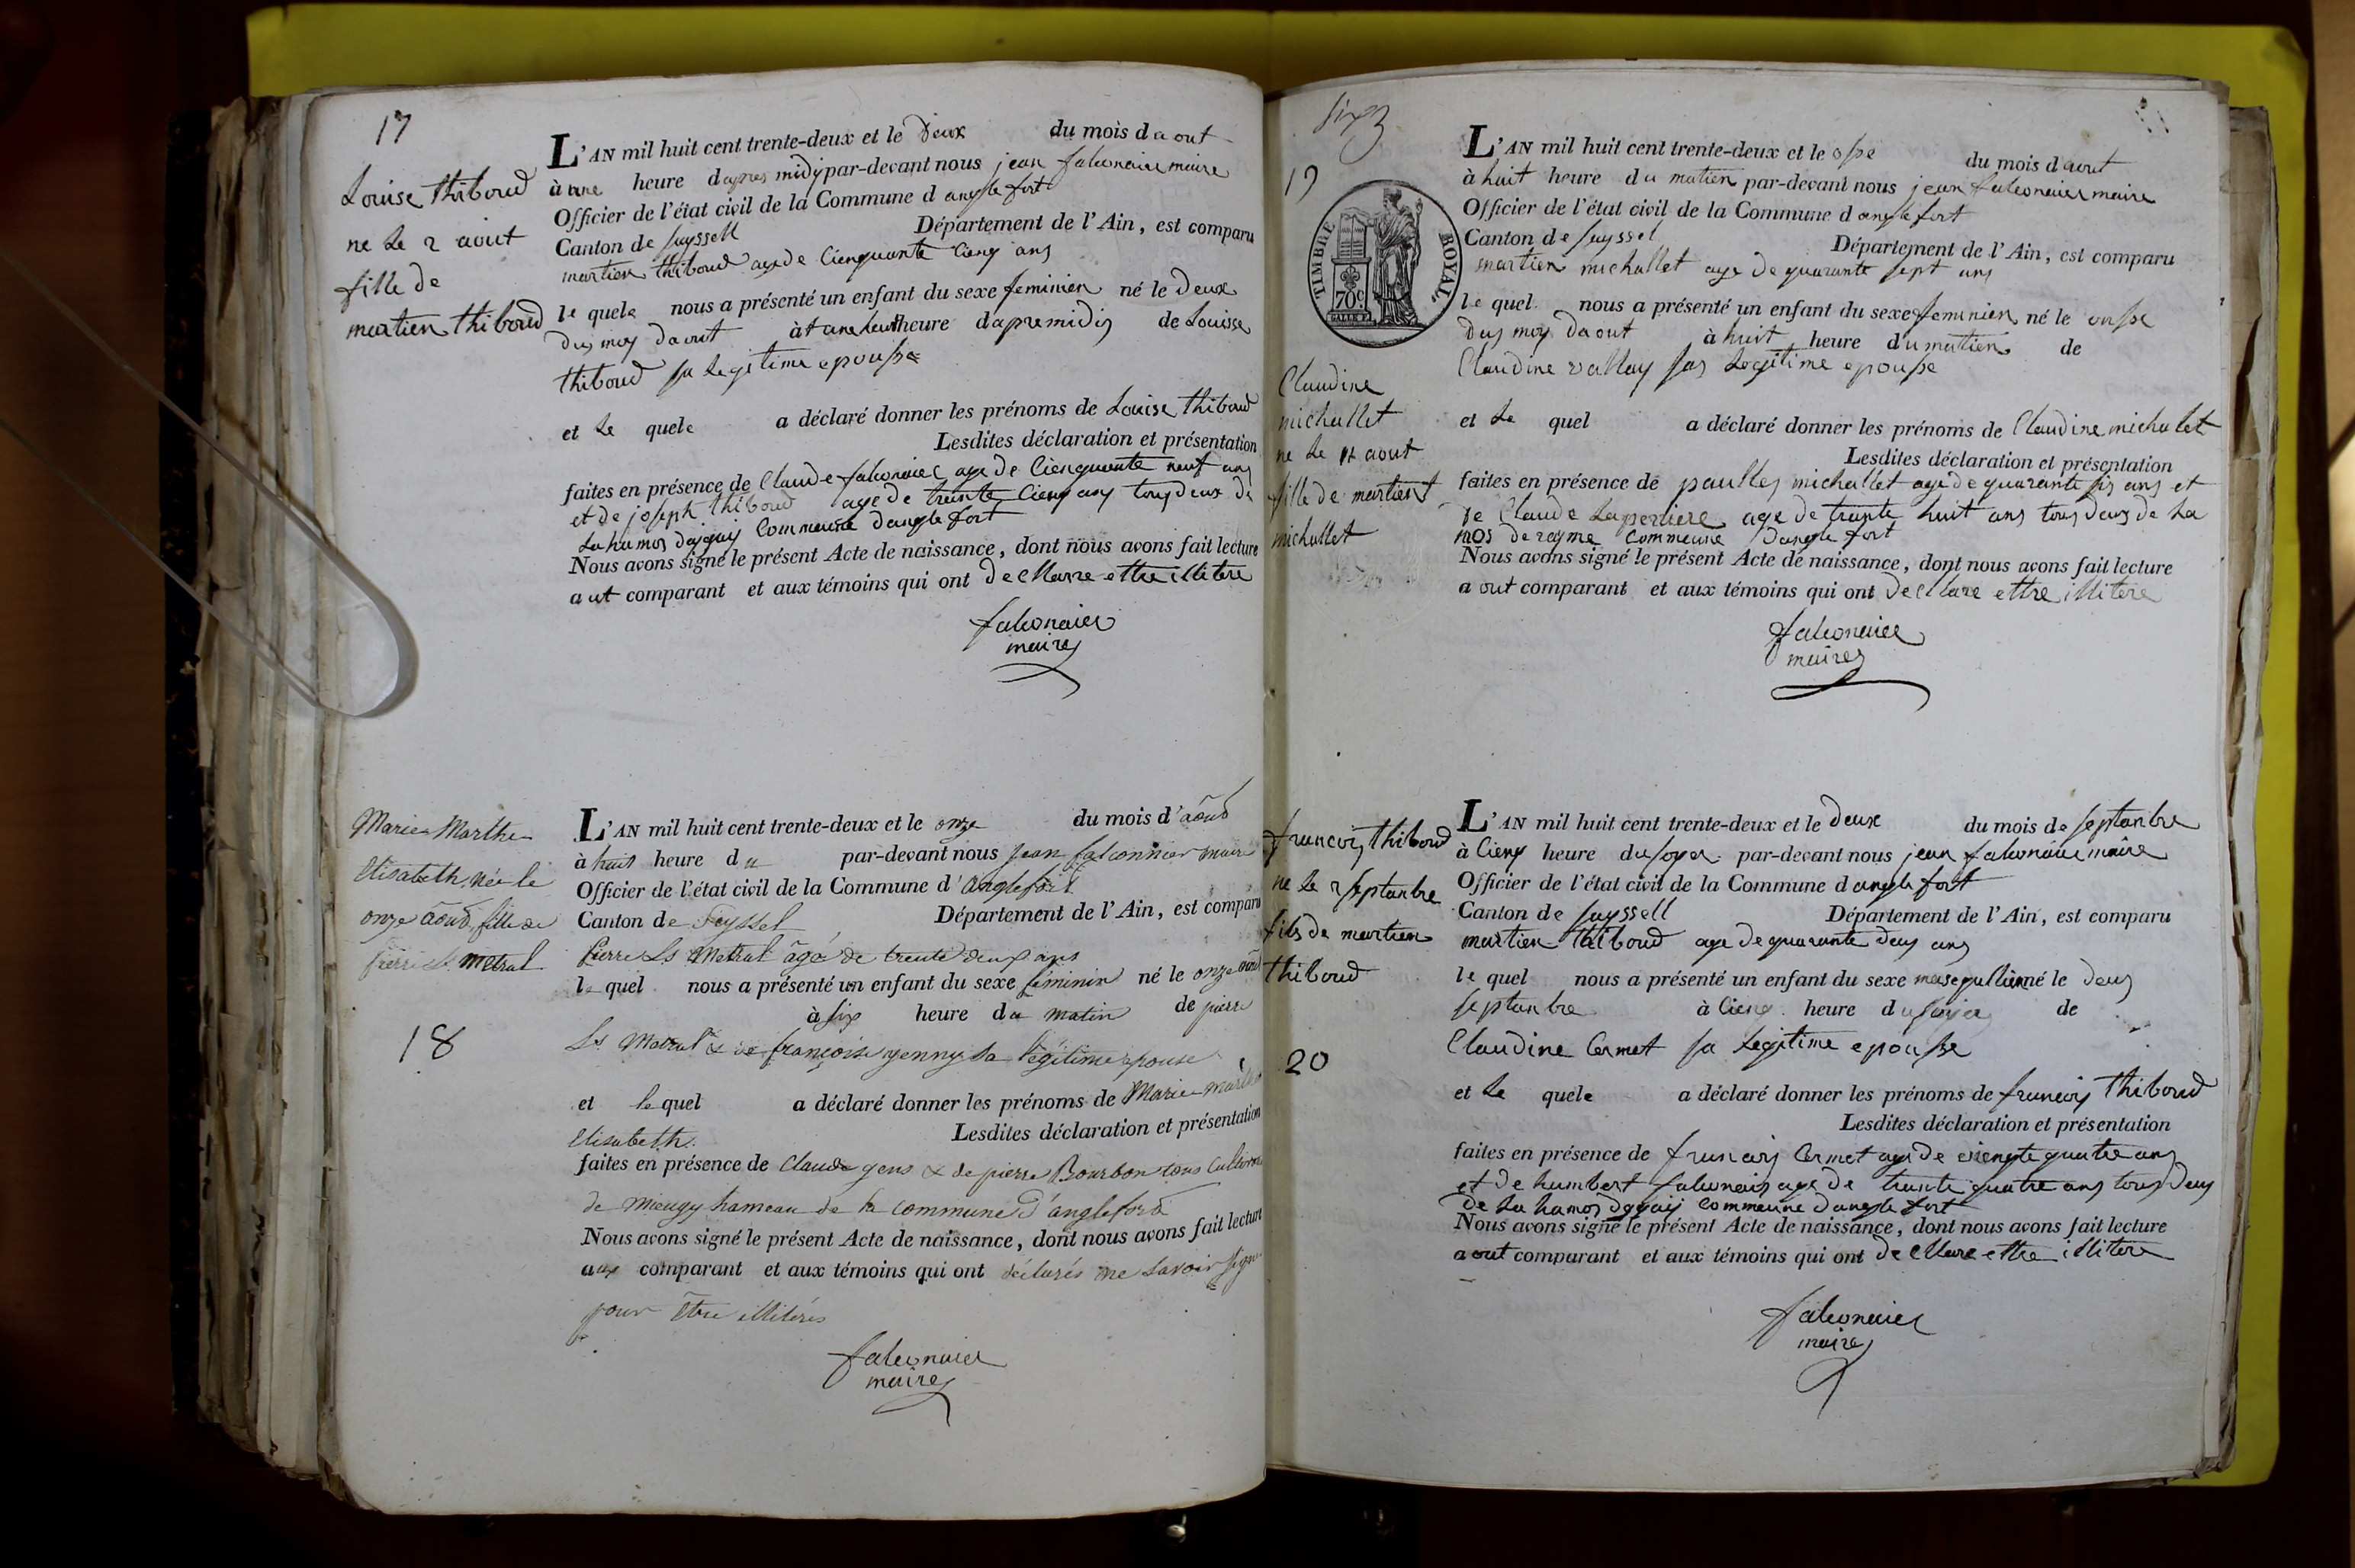 17
Louise thiboud
ne le 2 aout
fille de
martien thiboud
L'AN mil huit cent trente-deux et le deux du mois d aout
à une heure dapres midy par-devant nous jean falconaier maire
Officier de l'état civil de la Commune d anglefort
Canton de Seyssell Département de l'Ain, est comparu
martien thiboud age de Cienquante Cienq ans
le quele nous a présenté un enfant du sexe feminien né le deux
du moy daout à une heure dapremidy de Louisse
thiboud sa legitime epousse
et le quele a déclaré donner les prénoms de Louise thiboud
Lesdites déclaration et présentation
faites en présence de Claude falconaier age de Cienquante neuf ans
et de joseph thiboud age de trante Cienq ans tous deux de
La hamos Commeune danglefort
Nous avons signé le présent Acte de naissance, dont nous avons fait lecture
a ut comparant et aux témoins qui ont decllarre ettre illitere
falconaier
maire
Marie Marthe
Elisabeth, née le
onze août, fille de
pierre Ls metral
18
L'AN mil huit cent trente-deux et le onze du mois d'août
à huit heure du par-devant nous Jean falconnier maire
Officier de l'état civil de la Commune d'anglefort
Canton de Seyssel Département de l'Ain, est comparu
Pierre Ls Metral âgé de trente deux ans
le quel nous a présenté un enfant du sexe féminin né le onze août
à six heure du matin de pierre
Ls Metral & de françoise yenny sa légitime epouse
et le quel a déclaré donner les prénoms de Marie Marthe
Elisabeth. Lesdites déclaration et présentation
faites en présence de Claude gens & de pierre Bourbon tous
de mieugy hameau de la commune d'anglefort
Nous avons signé le présent Acte de naissance, dont nous avons fait lecture
aux comparant et aux témoins qui ont déclarés ne savoir signer
pour être illitérés
falconaier
maire
Six
19
TIMBRE ROYAL
70c
Claudine
michallet
ne le 11 aout
fille de martient
michallet
L'AN mil huit cent trente-deux et le osse du mois d aout
à huit heure du matien par-devant nous jean falconaier maire
Officier de l'état civil de la Commune d anglefort
Canton de Seyssel Département de l'Ain, est comparu
martien michallet age de quarante sept ans
le quel nous a présenté un enfant du sexe feminien né le onsse
du moy daout à huit heure du matien de
Claudine vallay sas legitime epousse
et le quel a déclaré donner les prénoms de Claudine michalet
Lesdites déclaration et présentation
faites en présence de paulles michallet age de quarante sis ans et
de Claude Laperliere age de trante huit ans tous deus de La
mos de reyme Commeune danglefort
Nous avons signé le présent Acte de naissance, dont nous avons fait lecture
a out comparant et aux témoins qui ont decllare ettre illitere
falconaier
maire
francois thiboud
ne le 2 septanbre
fils de martien
thiboud
20
L'AN mil huit cent trente-deux et le deux du mois de septanbre
à Cienq heure du soyer par-devant nous jean falconaier maire
Officier de l'état civil de la Commune d anglefort
Canton de Seyssell Département de l'Ain, est comparu
martien thiboud age de quarante deus ans
le quel nous a présenté un enfant du sexe masequllien né le deus
septanbre à Cienq heure du soyer de
Claudine Cermet sa legitime epousse
et le quele a déclaré donner les prénoms de francois thiboud
Lesdites déclaration et présentation
faites en présence de francois Cermet age de quatre ans
et de humbert falconaier age de trante quatre ans tous deus
de La hamos Commeune danglefort
Nous avons signé le présent Acte de naissance, dont nous avons fait lecture
a out comparant et aux témoins qui ont decllare ettre illitere
falconaier
maire